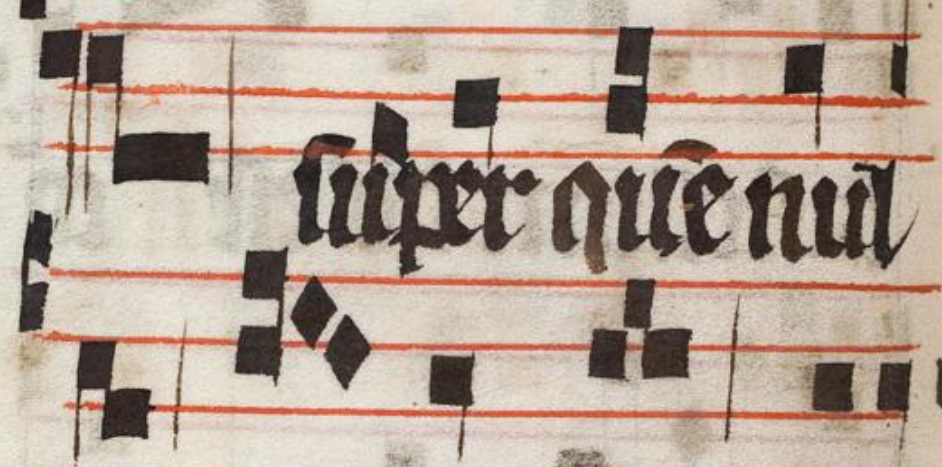 super quē nul